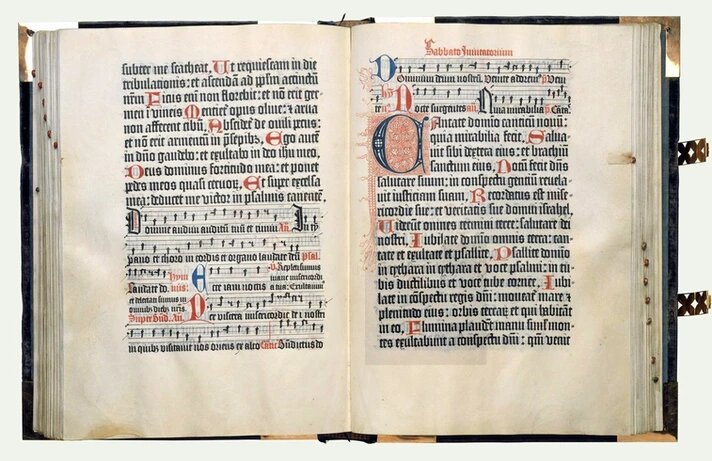 subter me scateat. Ut requiescam in die
tribulacionis: et ascendā ad ppłm accinctū
nrm Ficus em̄ non florebit: et nō erit ger-
men i vineis Mentiet᷒ opus oliue: et arua
non afferent cibū Abscidet᷒ de ovili pecus:
et nō erit armentū in p̄sepib᷒ Ego aūt
in dn̄o gaudebo: et exultabo in deo ihū meo
Deus dominus fortitudo mea: et ponet
pedes meos quasi ceruoꝝ Et super excelsa
mea: deducet me victor in psalmis canentē.
Domine audiui auditū tuū et timui An̄. In tȳ
pano et choro in cordis et organo laudate deū Psal.
Laudate do.
Super Bnd. An̄. Per viscera misericordie dei nostri
in quib᷒ visitauit nos oriens ex alto Benedictus do
Sabbato Inuitatorium
Dominum deum nostrū. Venite adorem᷒ p̄ Veni
Nocte surgentes an̄ Quia mirabilia p̄ Cāta.
Cantate domino canticū nouū:
quia mirabilia fecit. Salua-
uit sibi dextera eius: et brachiū
sanctum eius. Notū fecit dn̄s
salutare suum: in conspectu gentiū reuela-
uit iusticiam suam. Recordatus est mise-
ricordie sue: et veritatis sue domui israhel.
Uiderūt omnes termini terre: salutare dei
nostri. Iubilate domīo omnis terra: can-
tate et exultate et psallite. Psallite domino
in cythara in cythara et voce psalmi: in tu-
bis ductilibus et voce tube cornee. Iubi-
late in cōspectu regis dn̄i: moueat᷒ mare et
plenitudo eius: orbis terraꝝ et qui habitāt
in eo. Flumina plaudēt manu simul mon-
tes exultabunt a conspectu dn̄i: qm̄ venit